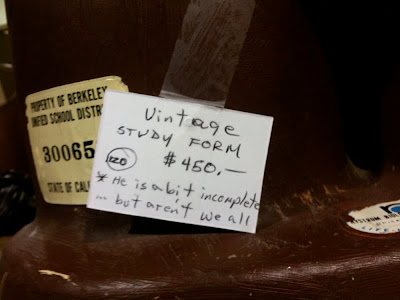 PROPERTY OF BERKELEY
UNIFIED SCHOOL DISTR
30065
STATE OF CAL
Vintage
STUDY FORM
120 $450.—
* He is a bit incomplete
... but aren't we all